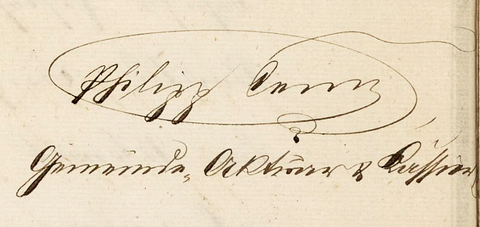 Philipp
Gemeinde, Aktuar & Kassier